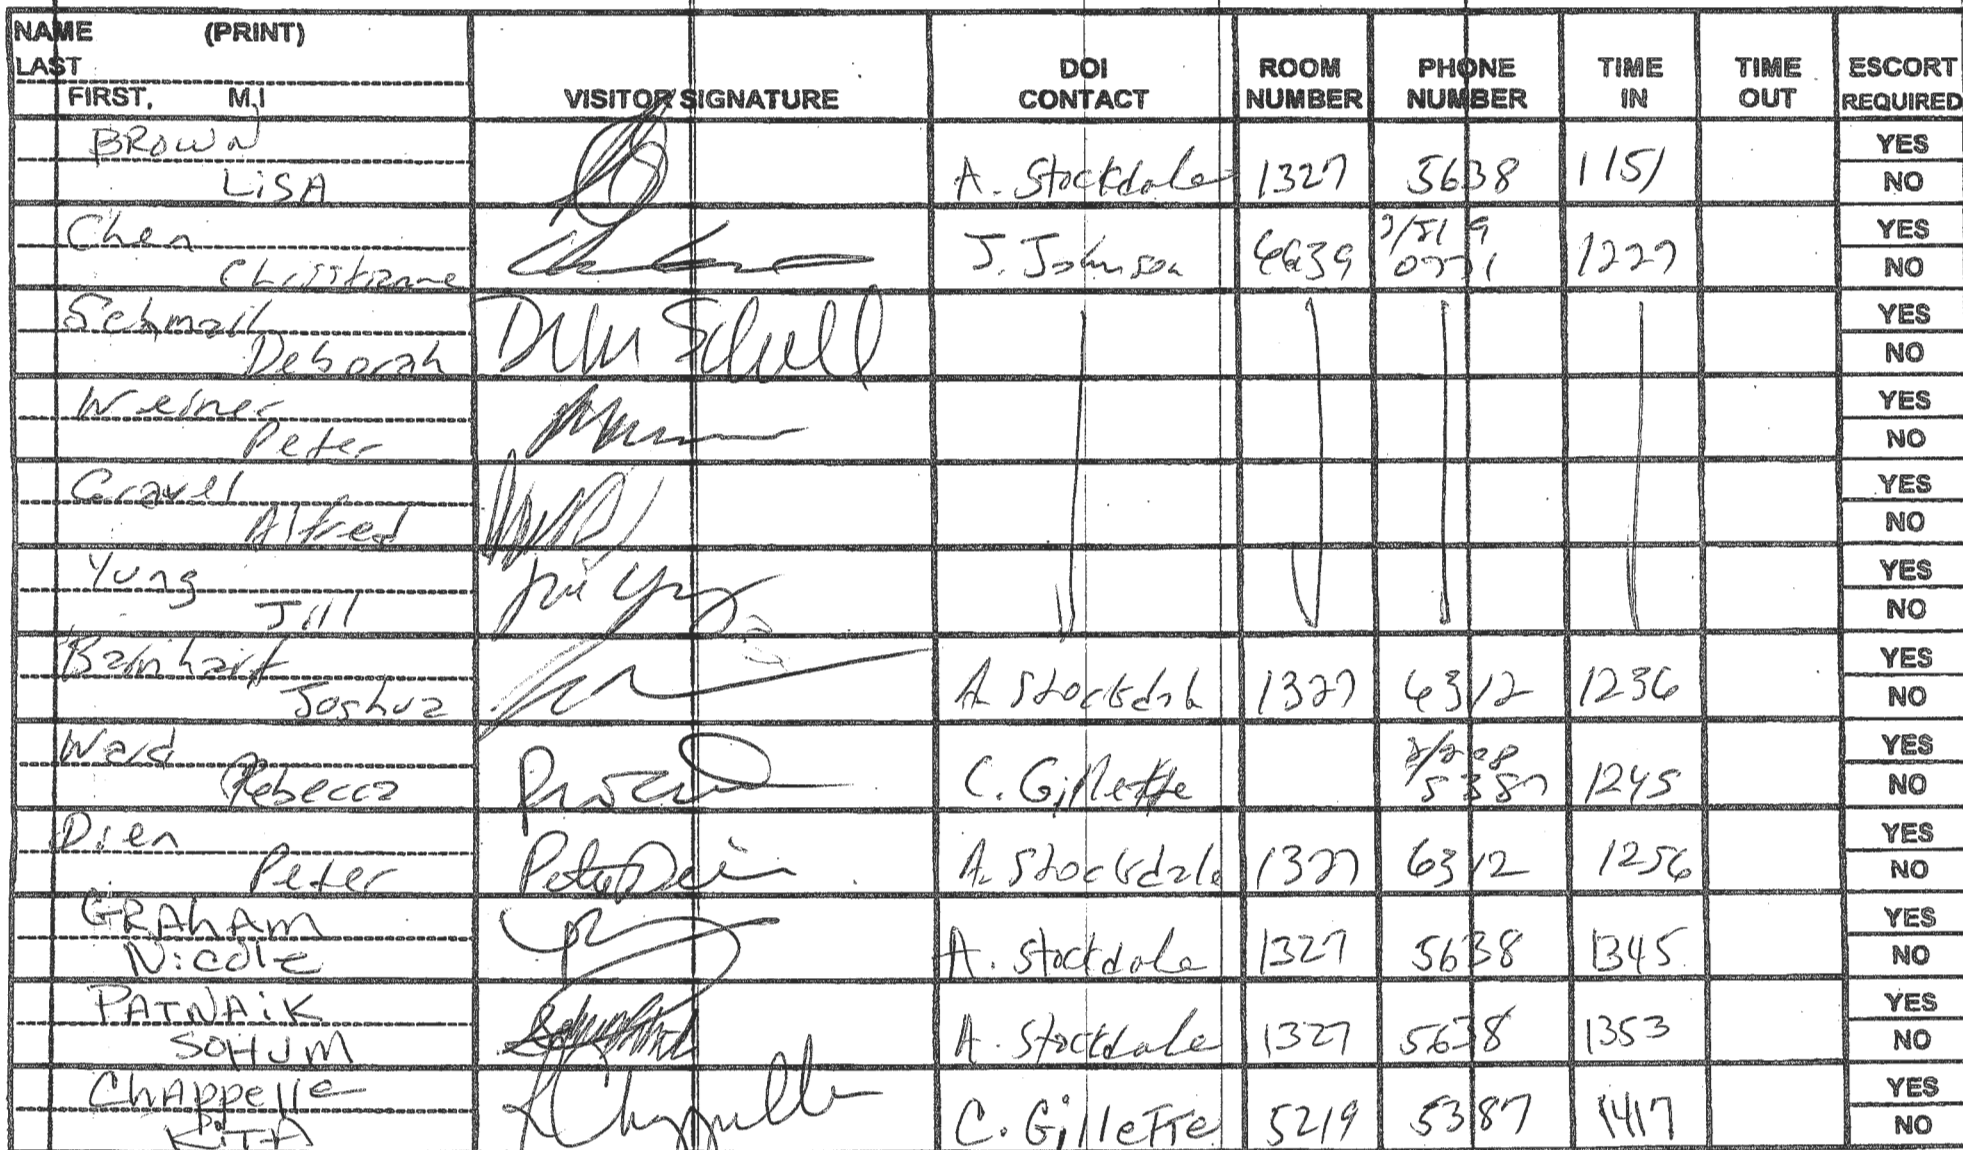 NAME (PRINT)
LAST
FIRST, M.I
VISITOR SIGNATURE
DOI CONTACT
ROOM NUMBER
PHONE NUMBER
TIME IN
TIME OUT
ESCORT REQUIRED
BROWN
LISA
A. Stockdale 1327 5638 1151 YES
NO
Chen
Christianne
J. Johnson 6639 1227 YES
NO
Schmall
Deborah
YES
NO
Weiner
Peter
YES
NO
Gravel
Alfred
YES
NO
Yung
Jill
YES
NO
Barnhart
Joshua
A. Stockdale 1327 6312 1236 YES
NO
Ward
Rebecca
C. Gillette 5387 1245 YES
NO
Dien
Peter
Peter Dien
A. Stockdale 1327 6312 1256 YES
NO
GRAHAM
Nicole
A. Stockdale 1327 5638 1345 YES
NO
PATNAIK
SOHUM
A. Stockdale 1327 5638 1353 YES
NO
Chappelle
C. Gillette 5219 5387 1417 YES
NO